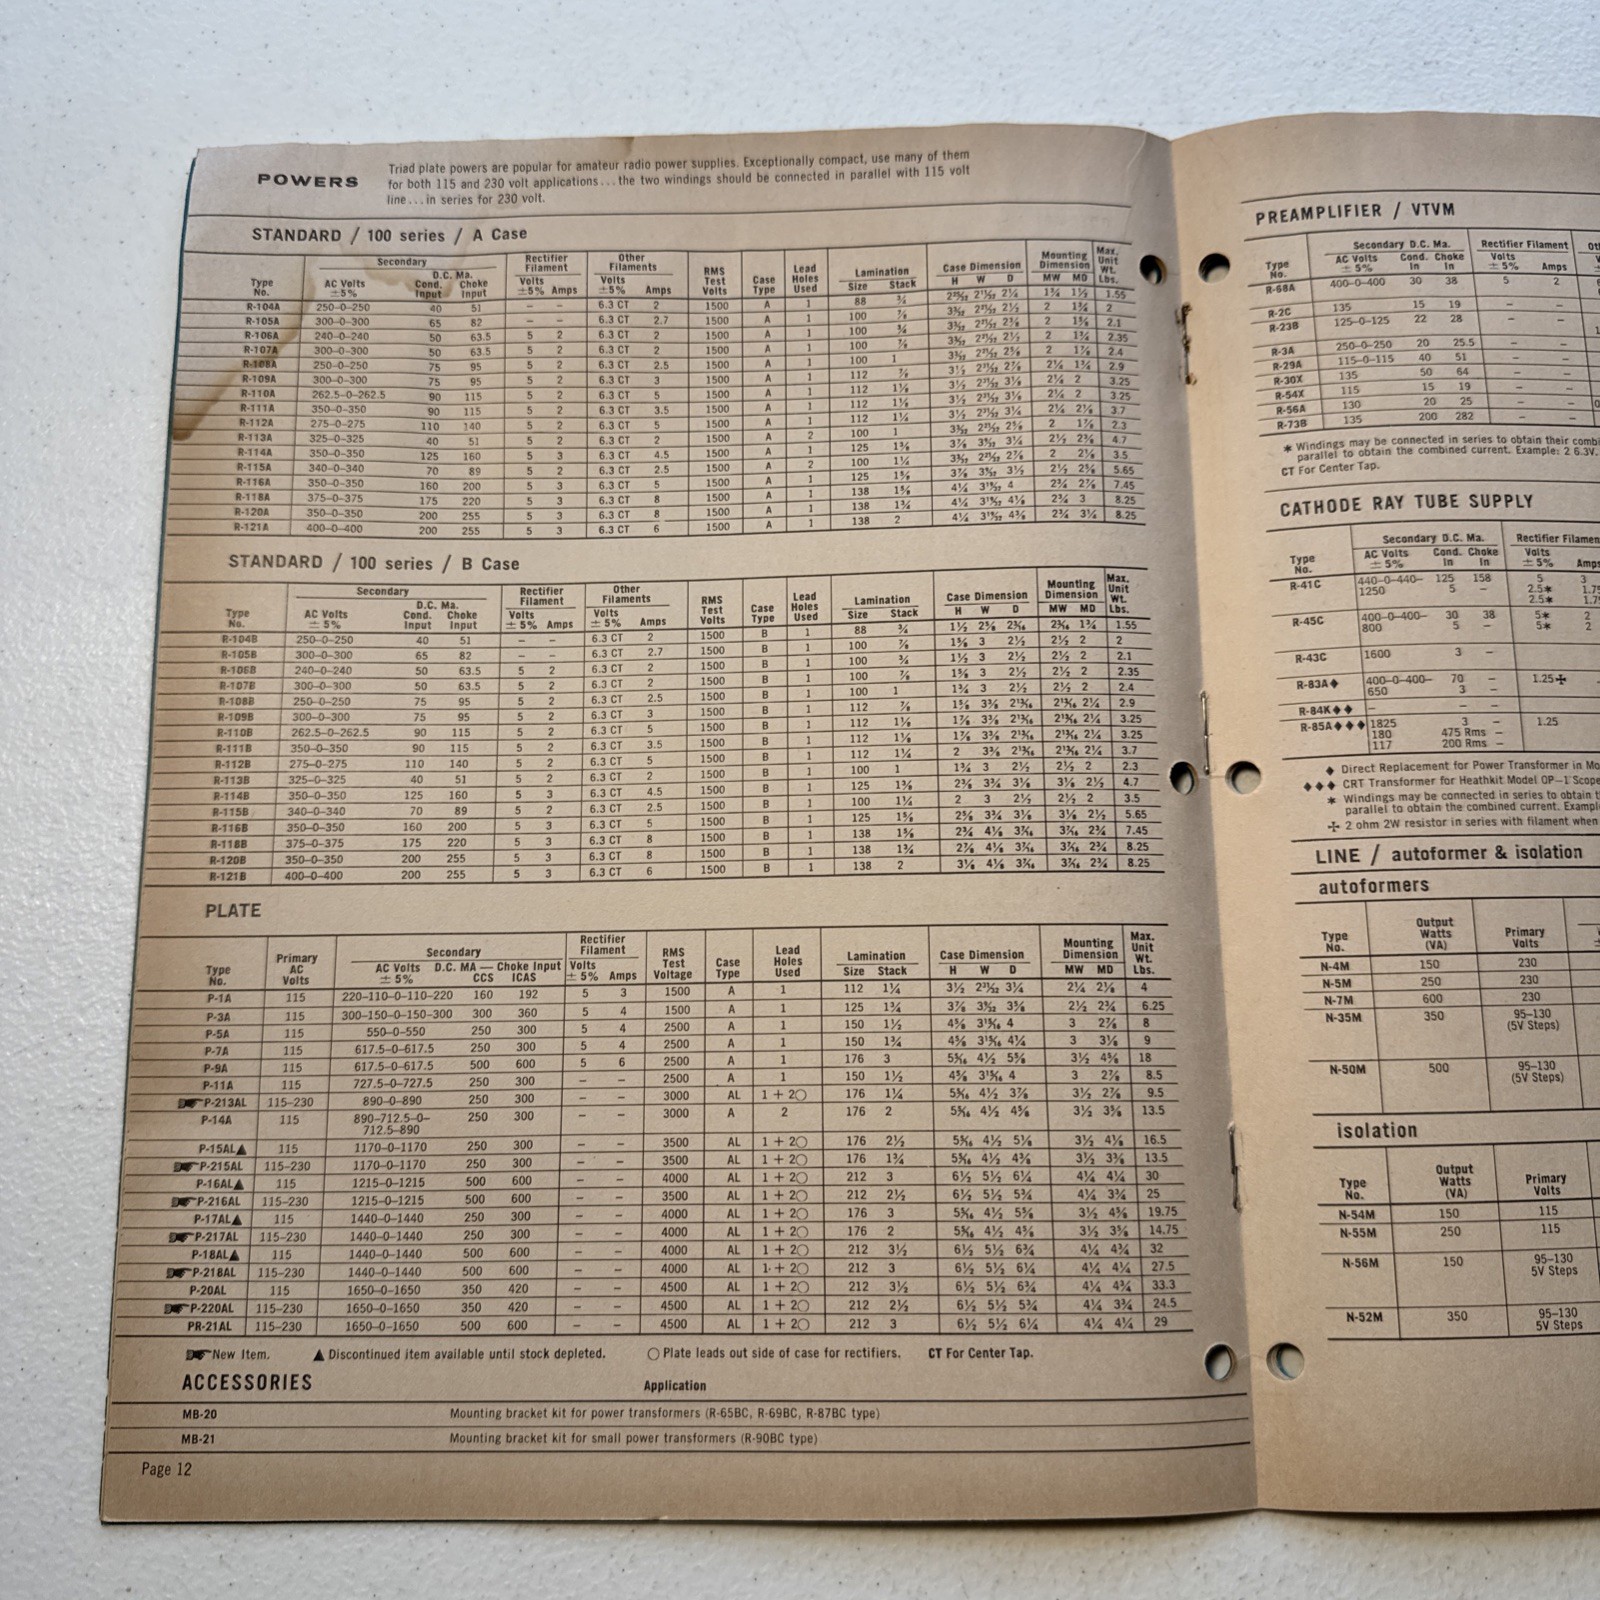 POWERS
Triad plate powers are popular for amateur radio power supplies. Exceptionally compact, use many of them
for both 115 and 230 volt applications...the two windings should be connected in parallel with 115 volt
line...in series for 230 volt.
STANDARD / 100 series / A Case
Type No. Secondary AC Volts ±5% D.C. Ma. Cond. Input Choke Input Rectifier Filament Volts ±5% Amps Other Filaments Volts ±5% Amps RMS Test Volts Case Type Lead Holes Used Lamination Size Stack Case Dimension H W D Mounting Dimension MW MD Max. Unit Wt. Lbs.
R-104A 250–0–250 40 51 – – 6.3 CT 2 1500 A 1 88 ¾ 1¾ 1½ 1.55
R-105A 300–0–300 65 82 – – 6.3 CT 2.7 1500 A 1 100 ⅞ 2 1¾ 2
R-106A 240–0–240 50 63.5 5 2 6.3 CT 2 1500 A 1 100 ¾ 2.1
R-107A 300–0–300 50 63.5 5 2 6.3 CT 2 1500 A 1 100 ⅞ 2.35
R-108A 250–0–250 75 95 5 2 6.3 CT 2.5 1500 A 1 100 1 2.4
R-109A 300–0–300 75 95 5 2 6.3 CT 3 1500 A 1 112 ⅞ 2.9
R-110A 262.5–0–262.5 90 115 5 2 6.3 CT 5 1500 A 1 112 1⅛ 3.25
R-111A 350–0–350 90 115 5 2 6.3 CT 3.5 1500 A 1 112 1⅛ 3.25
R-112A 275–0–275 110 140 5 2 6.3 CT 5 1500 A 1 112 1¼ 3.7
R-113A 325–0–325 40 51 5 2 6.3 CT 2 1500 A 2 100 1 2.3
R-114A 350–0–350 125 160 5 3 6.3 CT 4.5 1500 A 1 125 1⅜ 4.7
R-115A 340–0–340 70 89 5 2 6.3 CT 2.5 1500 A 2 100 1¼ 3.5
R-116A 350–0–350 160 200 5 3 6.3 CT 5 1500 A 1 125 1⅝ 5.65
R-118A 375–0–375 175 220 5 3 6.3 CT 8 1500 A 1 138 1⅝ 7.45
R-120A 350–0–350 200 255 5 3 6.3 CT 8 1500 A 1 138 1¾ 8.25
R-121A 400–0–400 200 255 5 3 6.3 CT 6 1500 A 1 138 2 8.25
STANDARD / 100 series / B Case
Type No. Secondary AC Volts ± 5% D.C. Ma. Cond. Input Choke Input Rectifier Filament Volts ± 5% Amps Other Filaments Volts ± 5% Amps RMS Test Volts Case Type Lead Holes Used Lamination Size Stack Case Dimension H W D Mounting Dimension MW MD Max. Unit Wt. Lbs.
R-104B 250–0–250 40 51 – – 6.3 CT 2 1500 B 1 88 ¾ 1.55
R-105B 300–0–300 65 82 – – 6.3 CT 2.7 1500 B 1 100 ⅞ 1⅝ 3 2½ 2½ 2 2
R-106B 240–0–240 50 63.5 5 2 6.3 CT 2 1500 B 1 100 ¾ 1½ 3 2½ 2½ 2 2.1
R-107B 300–0–300 50 63.5 5 2 6.3 CT 2 1500 B 1 100 ⅞ 1⅝ 3 2½ 2½ 2 2.35
R-108B 250–0–250 75 95 5 2 6.3 CT 2.5 1500 B 1 100 1 1¾ 3 2½ 2½ 2 2.4
R-109B 300–0–300 75 95 5 2 6.3 CT 3 1500 B 1 112 ⅞ 2.9
R-110B 262.5–0–262.5 90 115 5 2 6.3 CT 5 1500 B 1 112 1⅛ 3.25
R-111B 350–0–350 90 115 5 2 6.3 CT 3.5 1500 B 1 112 1⅛ 3.25
R-112B 275–0–275 110 140 5 2 6.3 CT 5 1500 B 1 112 1¼ 3.7
R-113B 325–0–325 40 51 5 2 6.3 CT 2 1500 B 1 100 1 1¾ 3 2½ 2½ 2 2.3
R-114B 350–0–350 125 160 5 3 6.3 CT 4.5 1500 B 1 125 1⅜ 2⅜ 3¾ 3⅛ 3⅛ 2½ 4.7
R-115B 340–0–340 70 89 5 2 6.3 CT 2.5 1500 B 1 100 1¼ 2 3 2½ 2½ 2 3.5
R-116B 350–0–350 160 200 5 3 6.3 CT 5 1500 B 1 125 1⅝ 2⅝ 3¾ 3⅛ 3⅛ 2½ 5.65
R-118B 375–0–375 175 220 5 3 6.3 CT 8 1500 B 1 138 1⅝ 7.45
R-120B 350–0–350 200 255 5 3 6.3 CT 8 1500 B 1 138 1¾ 8.25
R-121B 400–0–400 200 255 5 3 6.3 CT 6 1500 B 1 138 2 8.25
PLATE
Type No. Primary AC Volts Secondary AC Volts ± 5% D.C. MA — Choke Input CCS ICAS Rectifier Filament Volts ± 5% Amps RMS Test Voltage Case Type Lead Holes Used Lamination Size Stack Case Dimension H W D Mounting Dimension MW MD Max. Unit Wt. Lbs.
P-1A 115 220–110–0–110–220 160 192 5 3 1500 A 1 112 1¼ 2¼ 2⅛ 4
P-3A 115 300–150–0–150–300 300 360 5 4 1500 A 1 125 1¾ 2½ 2¾ 6.25
P-5A 115 550–0–550 250 300 5 4 2500 A 1 150 1½ 3 2⅞ 8
P-7A 115 617.5–0–617.5 250 300 5 4 2500 A 1 150 1¾ 3 3⅛ 9
P-9A 115 617.5–0–617.5 500 600 5 6 2500 A 1 176 3 3½ 4⅝ 18
P-11A 115 727.5–0–727.5 250 300 – – 2500 A 1 150 1½ 3 2⅞ 8.5
☛P-213AL 115–230 890–0–890 250 300 – – 3000 AL 1 + 2○ 176 1¼ 3½ 2⅞ 9.5
P-14A 115 890–712.5–0–712.5–890 250 300 – – 3000 A 2 176 2 3½ 3⅝ 13.5
P-15AL▲ 115 1170–0–1170 250 300 – – 3500 AL 1 + 2○ 176 2½ 3½ 4⅛ 16.5
☛P-215AL 115–230 1170–0–1170 250 300 – – 3500 AL 1 + 2○ 176 1¾ 3½ 3⅜ 13.5
P-16AL▲ 115 1215–0–1215 500 600 – – 4000 AL 1 + 2○ 212 3 6½ 5½ 6¼ 4¼ 4¼ 30
☛P-216AL 115–230 1215–0–1215 500 600 – – 3500 AL 1 + 2○ 212 2½ 6½ 5½ 5¾ 4¼ 3¾ 25
P-17AL▲ 115 1440–0–1440 250 300 – – 4000 AL 1 + 2○ 176 3 3½ 4⅝ 19.75
☛P-217AL 115–230 1440–0–1440 250 300 – – 4000 AL 1 + 2○ 176 2 3½ 3⅝ 14.75
P-18AL▲ 115 1440–0–1440 500 600 – – 4000 AL 1 + 2○ 212 3½ 6½ 5½ 6¾ 4¼ 4¾ 32
☛P-218AL 115–230 1440–0–1440 500 600 – – 4000 AL 1 + 2○ 212 3 6½ 5½ 6¼ 4¼ 4¼ 27.5
P-20AL 115 1650–0–1650 350 420 – – 4500 AL 1 + 2○ 212 3½ 6½ 5½ 6¾ 4¼ 4¾ 33.3
☛P-220AL 115–230 1650–0–1650 350 420 – – 4500 AL 1 + 2○ 212 2½ 6½ 5½ 5¾ 4¼ 3¾ 24.5
PR-21AL 115–230 1650–0–1650 500 600 – – 4500 AL 1 + 2○ 212 3 6½ 5½ 6¼ 4¼ 4¼ 29
☛New Item. ▲Discontinued item available until stock depleted. ○Plate leads out side of case for rectifiers. CT For Center Tap.
ACCESSORIES Application
MB-20 Mounting bracket kit for power transformers (R-65BC, R-69BC, R-87BC type)
MB-21 Mounting bracket kit for small power transformers (R-90BC type)
Page 12
PREAMPLIFIER / VTVM
Type No. Secondary D.C. Ma. AC Volts ± 5% Cond. In Choke In Rectifier Filament Volts ± 5% Amps
R-68A 400–0–400 30 38 5 2
R-2C 135 15 19 – –
R-23B 125–0–125 22 28 – –
R-3A 250–0–250 20 25.5 – –
R-29A 115–0–115 40 51 – –
R-30X 135 50 64 – –
R-54X 115 15 19 – –
R-56A 130 20 25 – –
R-73B 135 200 282 – –
* Windings may be connected in series to obtain their
parallel to obtain the combined current. Example: 2 6.3V.
CT For Center Tap.
CATHODE RAY TUBE SUPPLY
Type No. Secondary D.C. Ma. AC Volts ± 5% Cond. In Choke In Rectifier Volts ± 5%
R-41C 440–0–440– 125 158 5 3
1250 5 – 2.5*
2.5*
R-45C 400–0–400– 30 38 5* 2
800 5 – 5* 2
R-43C 1600 3 –
R-83A♦ 400–0–400– 70 – 1.25✢
650 3 –
R-84K♦♦ – – –
R-85A♦♦♦ 1825 3 – 1.25
180 475 Rms –
117 200 Rms –
♦ Direct Replacement for Power Transformer in
♦♦♦ CRT Transformer for Heathkit Model OP–1 Scope
* Windings may be connected in series to obtain
parallel to obtain the combined current.
✢ 2 ohm 2W resistor in series with filament when
LINE / autoformer & isolation
autoformers
Type No. Output Watts (VA) Primary Volts
N-4M 150 230
N-5M 250 230
N-7M 600 230
N-35M 350 95–130
(5V Steps)
N-50M 500 95–130
(5V Steps)
isolation
Type No. Output Watts (VA) Primary Volts
N-54M 150 115
N-55M 250 115
N-56M 150 95–130
5V Steps
N-52M 350 95–130
5V Steps